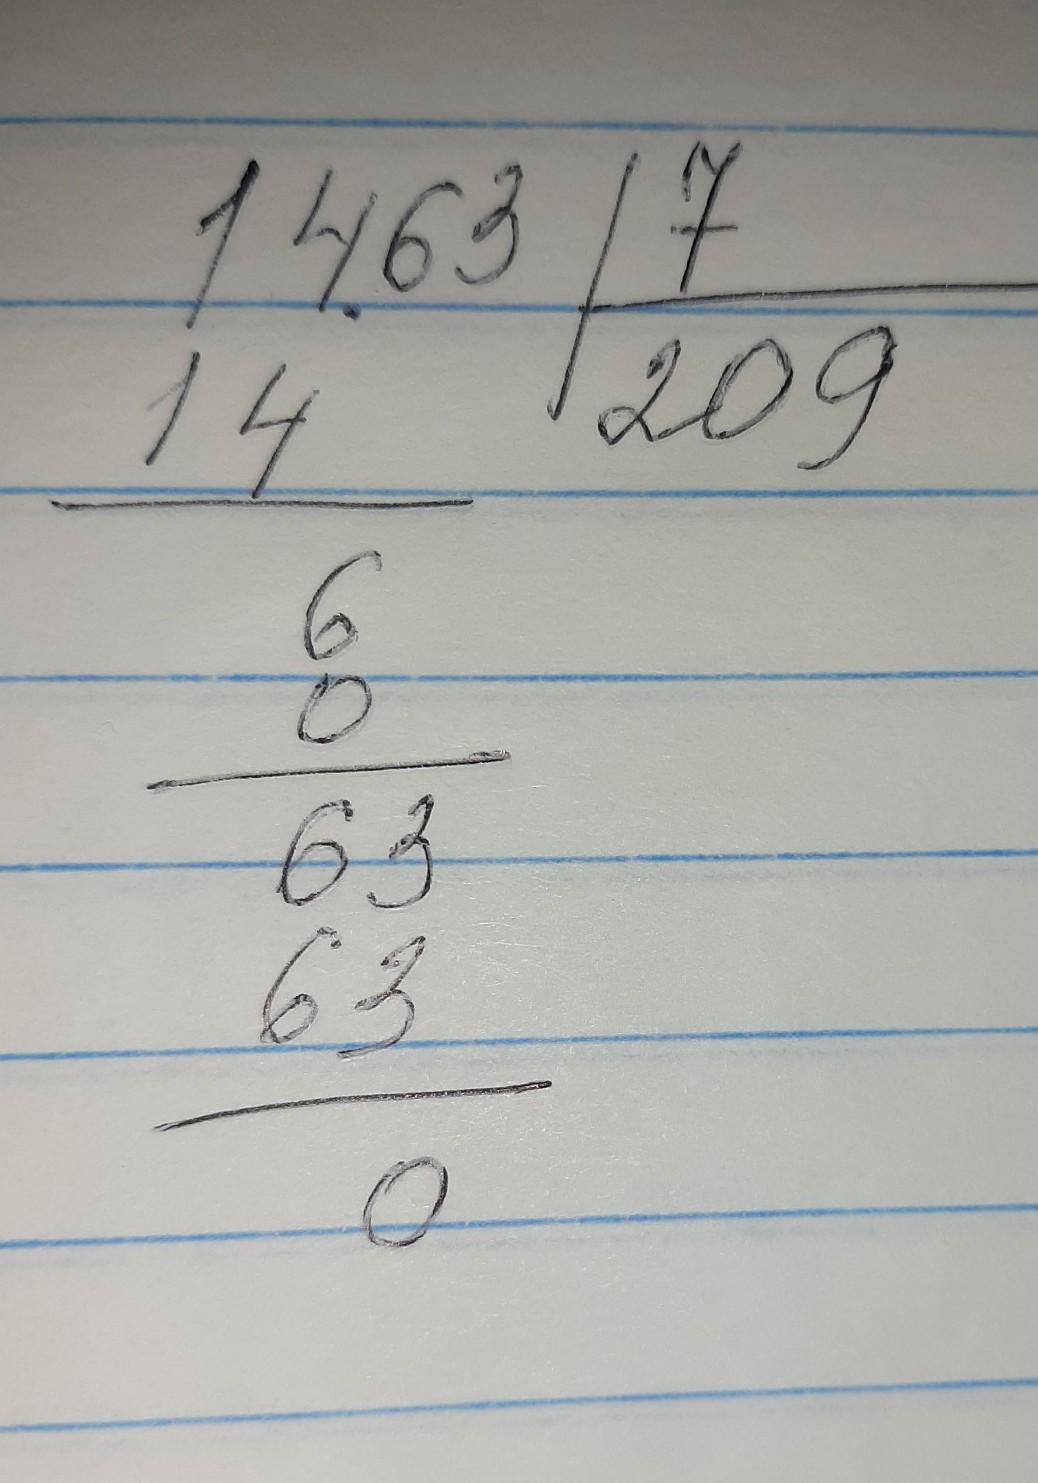 14.63 7
14 209
6
0
63
63
0